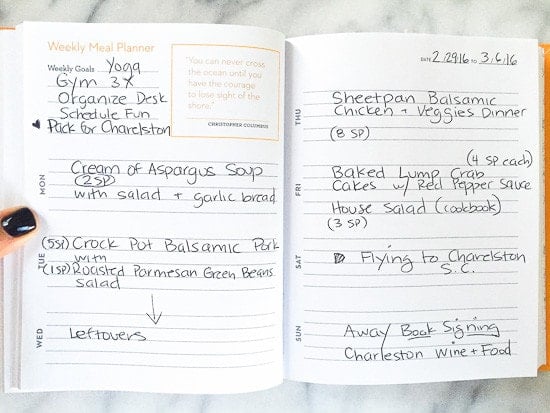 Weekly Meal Planner
Weekly Goals Yoga
Gym 3x
Organize Desk
Schedule Fun
Pack for Charelston
"You can never cross
the ocean until you
have the courage
to lose sight of the
shore."
CHRISTOPHER COLUMBUS
MON
Cream of Aspargus Soup
(2SP)
with salad + garlic bread
TUE
(5SP) Crock Pot Balsamic Pork
with
(1SP) Roasted Parmesan Green Beans
salad
WED
Leftovers
DATE 2/29/16 TO 3/6/16
THU
Sheetpan Balsamic
Chicken + Veggies Dinner
(8 SP)
FRI
(4 SP each)
Baked Lump Crab
Cakes w/ Red Pepper Sauce
House Salad (cookbook)
(3 SP)
SAT
Flying to Charelston
S.C.
SUN
Away Book Signing
Charleston Wine + Food